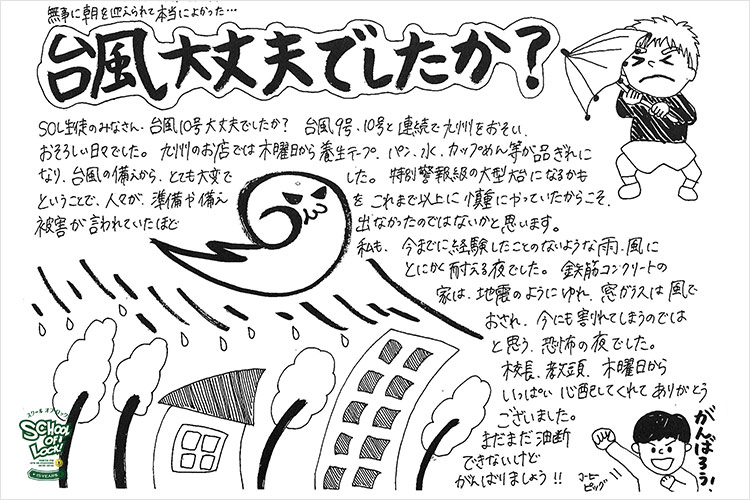 無事に朝を迎えられて本当によかった…
台風大丈夫でしたか？
SOL生徒のみなさん、台風10号大丈夫でしたか？ 台風9号、10号と連続で九州をおそい、
おそろしい日々でした。九州のお店では木曜日から養生テープ、パン、水、カップめん等が品ぎれに
なり、台風の備えから、とても大変で した。特別警報級の大型台になるかも
ということで、人々が、準備や備え を これまで以上に慎重にやっていたからこそ、
被害が言われていたほど 出なかったのではないかと思います。
私も、今までに経験したことのないような雨、風に
とにかく耐える夜でした。鉄筋コンクリートの
家は、地震のようにゆれ、窓ガラスは風で
おされ、今にも割れてしまうのでは
と思う、恐怖の夜でした。
校長、教頭、木曜日から
いっぱい心配してくれてありがとう
ございました。
まだまだ油断
できないけど
がんばりましょう！！
がんばろう！
コーヒー
ピッグ
スクール オブ ロック
SCHOOL
OF
LOCK!
15 YEARS